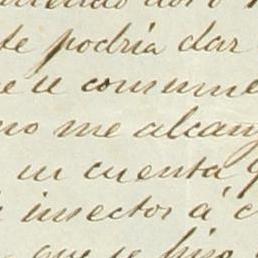 te podria dar
se consume
no me alcan
su cuenta
insectos á
que se hizo